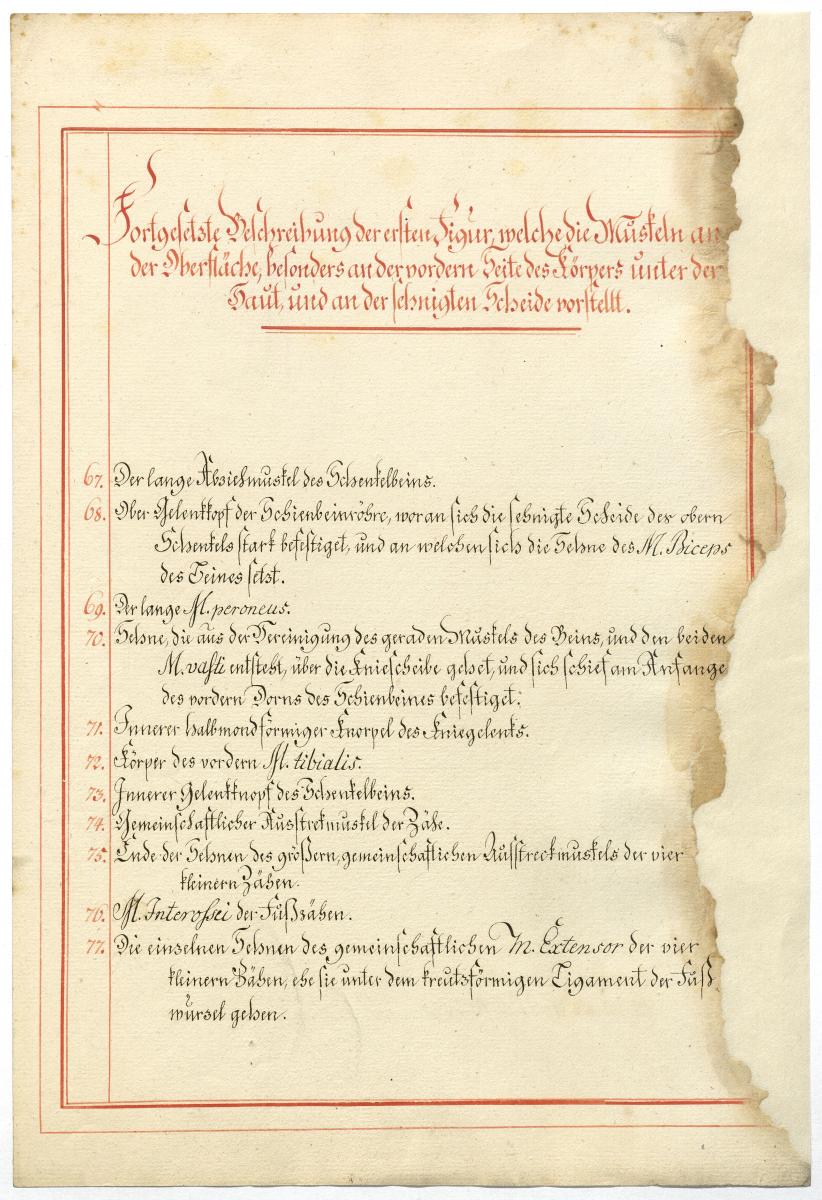 Fortgesetzte Beschreibung der ersten Figur, welche die Muskeln an
der Oberfläche, besonders an der vordern Seite des Körpers unter der
Haut, und an der sehnigten Scheide vorstellt.
67. Der lange Abziehmuskel des Schenkelbeins.
68. Ober Gelenkkopf der Schienbeinröhre, woran sich die sehnigte Scheide des obern
Schenkels stark befestiget, und an welchen sich die Sehne des M. Biceps
des Beines setzt.
69. Der lange M. peroneus.
70. Sehne, die aus der Vereinigung des geraden Muskels des Beins, und den beiden
M. vasti entsteht, über die Kniescheibe gehet, und sich schief am Anfange
des vordern Dorns des Schienbeines befestiget.
71. Innerer halbmondförmiger Knorpel des Kniegelenks.
72. Körper des vordern M. tibialis.
73. Innerer Gelenkknopf des Schenkelbeins.
74. Gemeinschaftlicher Ausstrekmuskel der Zähe.
75. Ende der Sehnen des größern, gemeinschaftlichen Ausstreckmuskels der vier
kleinern Zähen.
76. M. Interossei der Fußzähen.
77. Die einzelnen Sehnen des gemeinschaftlichen M. Extensor der vier
kleinern Zähen, ehe sie unter dem kreutzförmigen Ligament der Fuß
wurzel gehen.